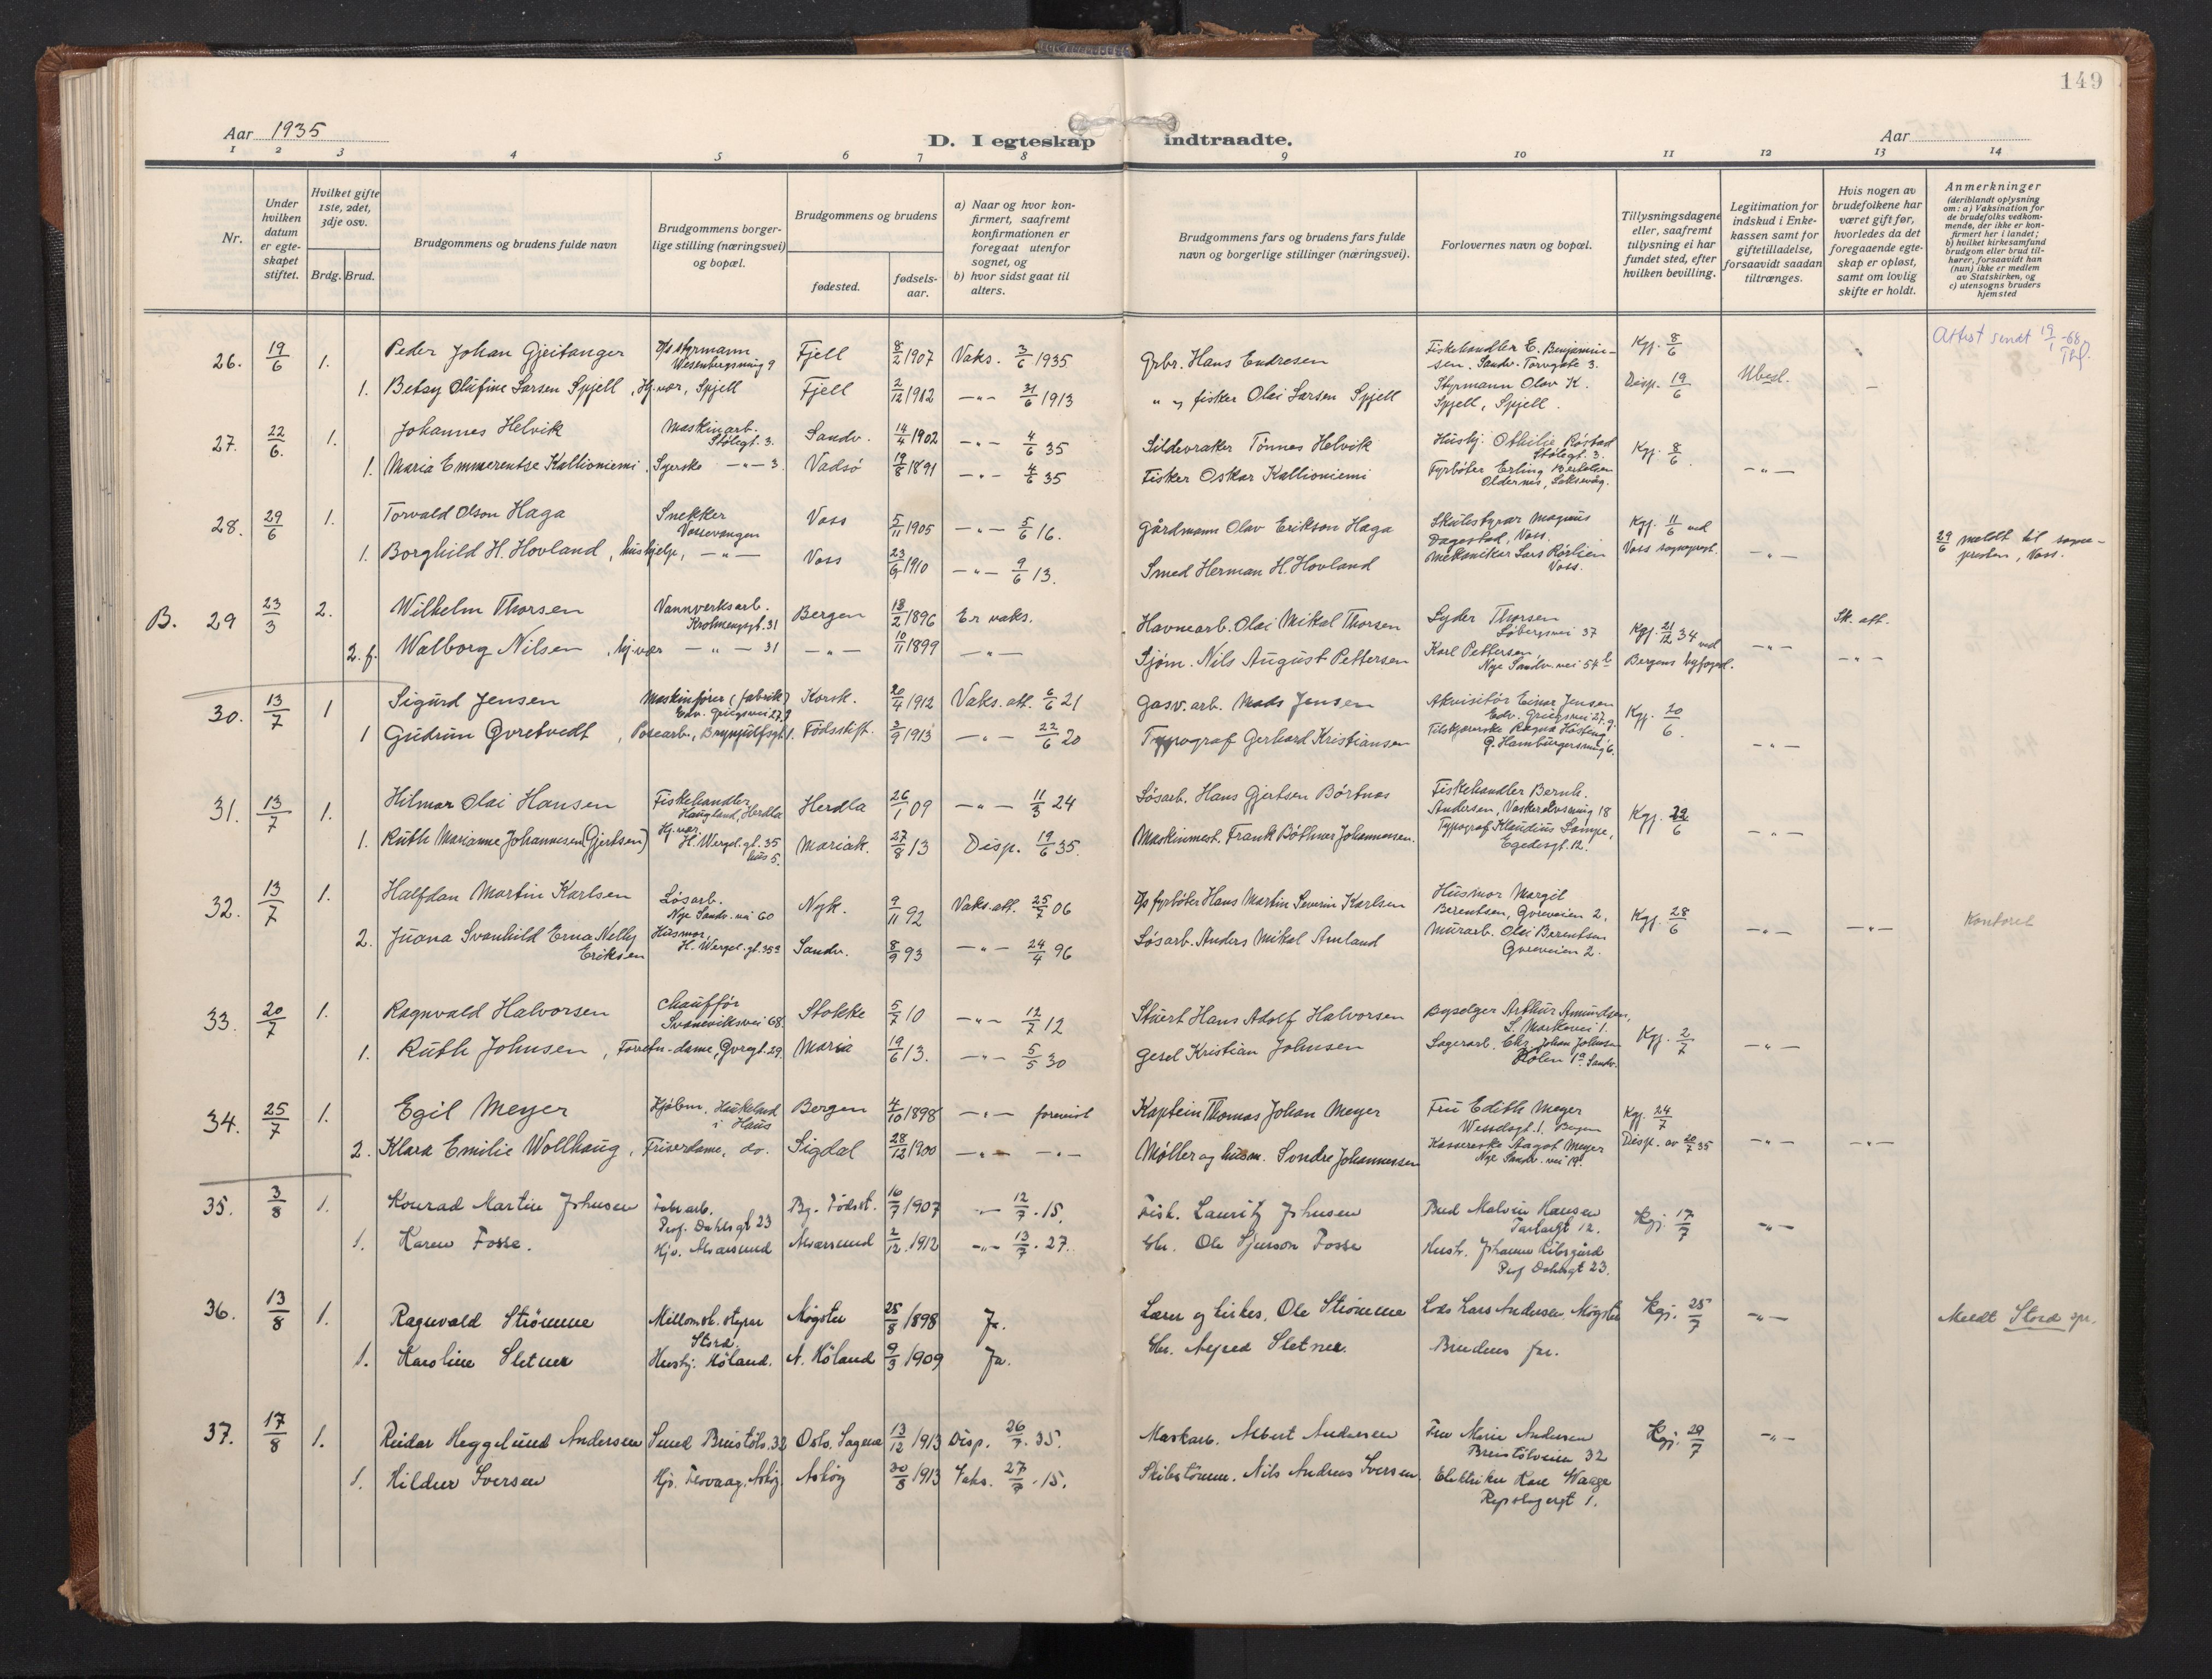 149
Aar 1935
D. I egteskap indtraadte.
Aar
1 2 3 4 5 6 7 8 9 10 11 12 13 14
Nr.
Under hvilken datum er egteskapet stiftet.
Hvilket gifte 1ste, 2det, 3dje osv.
Brdg. Brud.
Brudgommens og brudens fulde navn
Brudgommens borgerlige stilling (næringsvei) og bopæl.
Brudgommens og brudens
fødested.
fødselsaar.
a) Naar og hvor konfirmert, saafremt konfirmationen er foregaat utenfor sognet, og
b) hvor sidst gaat til alters.
Brudgommens fars og brudens fars fulde navn og borgerlige stillinger (næringsvei).
Forlovernes navn og bopæl.
Tillysningsdagene eller, saafremt tillysning ei har fundet sted, efter hvilken bevilling.
Legitimation for indskud i Enkekassen samt for giftetilladelse, forsaavidt saadan tiltrænges.
Hvis nogen av brudefolkene har været gift før, hvorledes da det foregaaende egteskap er opløst, samt om lovlig skifte er holdt.
Anmerkninger (deriblandt oplysning om: a) Vaksination for de brudefolks vedkommende, der ikke er konfirmert her i landet; b) hvilket kirkesamfund brudgom eller brud tilhører, forsaavidt han (hun) ikke er medlem av Statskirken, og c) utensogns bruders hjemsted
26. 19/6 1. Peder Johan Gjeitanger D/s styrmann Wesenbergsmug 9 Fjell 8/2 1907 Vaks. 3/6 1935 Grbr. Hans Endresen Fiskehandler E. Benjaminsen. Sandv. Torvgate 3. Kgj. 8/6 Attest sendt 19/1 -68
1. Betsy Olufine Larsen Spjell, Hj. vær, Spjell Fjell 2/12 1912 -"- 21/6 1913 " og fisker Olai Larsen Spjell Styrmann Olav K. Spjell, Spjell. Disp. 19/6 Ubesl. -
27. 22/6. 1. Johannes Helvik Maskinarb. Stølegt. 3. Sandv. 14/4 1902 -"- 4/6 35 Sildevraker Tønnes Helvik Hushj. Othilie Røstad Stølegt. 3. Kgj. 8/6.
1. Maria Emmerentse Kallioniemi, Syerske -"- 3. Vadsø 19/8 1891 -"- 4/6 35 Fisker Oskar Kallioniemi Fyrbøter Erling Bertelsen Oldernes, Laksevåg. -"-
28. 29/6 1. Torvald Olson Haga Snekker Vossevangen Voss 5/11 1905 -"- 5/6 16. Gårdmann Olav Erikson Haga Skulestyrar Magnus Dagestad, Voss. Kgj. 11/6 ved Voss sogneprst. 29/6 meldt til sognepresten, Voss.
1. Borghild H. Hovland, hushjelp, -"- Voss 23/9 1910 -"- 9/6 13. Smed Herman H. Hovland Mekaniker Lars Rørlien Voss. -"-
B. 29 23/3 2. Wilhelm Thorsen Vannverksarb. Krohnengsgt. 31 Bergen 18/2 1896 Er vaks. Havnearb. Olai Mikal Thorsen Lyder Thorsen Løbergsvei 37 Kgj. 21/12 34 ved Bergens byfogd. Sk. att.
2. f. Walborg Nilsen, hj. vær -"- 31 -"- 10/11 1899 -"- Sjøm. Nils August Pettersen Karl Pettersen, Nye Sandv. vei 54 b -"- -"-
30. 13/7 1 Sigurd Jensen Maskinfører (fabrik) Edv. Griegsvei 27.g Korsk. 20/4 1912 Vaks. att. 6/6 21 Gasv. arb. Mads Jensen Akvisitør Einar Jensen Edv. Griegsvei 27.g. Kgj. 20/6.
1 Gudrun Øvretvedt, Posearb., Brynjulfsgt. 1. Fødsstift. 3/9 1913 -"- 22/6 20 Typograf Gerhard Kristiansen Tilskjærerske Ragna Høsteng, G. Hamburgersmug 6. -"-
31. 13/7 1. Hilmar Olai Hansen Fiskehandler Haugland, Herdla Herdla 26/1 09 -"- 11/3 24 Løsarb. Hans Gjertsen Børtnes Fiskehandler Bernh. Andersen, Vaskerelvsmug 18 Kgj. 22/6
1. Ruth Marianne Johannesen (Gjertsen) Hj. vær. H. Wergel. gt. 35 hus 5. Mariak. 27/8 13 Disp. 19/6 35. Maskinmest. Frank Böthner Johannesen. Typograf Klaudius Lampe, Egedesgt. 12. -"-
32. 13/7 1. Halfdan Martin Karlsen Løsarb. Nye Sandv. vei 60 Nyk. 9/11 92 Vaks. att. 25/7 06 D/s fyrbøter Hans Martin Severin Karlsen Husmor Margit Berentsen, Øvreveien 2. Kgj. 28/6
2. Juana Svanhild Erna Nelly Eriksen Husmor, H. Wergel. gt. 35a Sandv. 8/9 93 -"- 24/4 96 Løsarb. Anders Mikal Amland Murarb. Olai Berentsen Øvreveien 2. -"- -"- Kontoret
33. 20/7 1. Ragnvald Halvorsen Chauffør Svaneviksvei 68. Stokke 5/7 10 -"- 12/7 12 Stuert Hans Adolf Halvorsen Byselger Arthur Amundsen, L. Markevei 1. Kgj. 2/7
1. Ruth Johnsen, Forretn-dame, Øvregt. 29. Maria 19/6 13. -"- 5/5 30 Gesel Kristian Johnsen Lagerarb. Chr. Johan Johnsen Hølen 1a Sandv. -"-
34. 25/7 1. Egil Meyer Kjøbm. Haukeland i Haus Bergen 4/10 1898 -"- forevist Kaptein Thomas Johan Meyer Fru Edith Meyer Wesselsgt. 1. Bergen Kgj. 24/7
2. Klara Emilie Wollhaug, Friserdame, do. Sigdal 28/12 1900 -"- -"- Møller og husm. Sondre Johannessen Kassererske Aagot Meyer Nye Sandv. vei 19. Disp. av 20/7 35 -"- -"-
35. 3/8 1. Konrad Martin Johnsen Fabr. arb. Prof. Dahls gt 23 Bg. Fødsst. 16/7 1907 -"- 12/7. 15. Fisk. Lauritz Johnsen Bud Malvin Hansen Tartargt 12. Kgj. 17/7 -"-
1. Karen Fosse. Hjv. Alvarsund Alvarsund 2/12. 1912 -"- 13/7. 27. Gbr. Ole Sjurson Fosse Hustr. Johanne Ribsgård Prof Dahlsgt 23.
36. 13/8 1. Ragnvald Strömme Millomsk. styrar Stord. Møgster 25/8 1898 Ja. Lærer og kirkes. Ole Strömme Lods Lars Andersen Møgster Kgj. 25/7 -"- Meldt Stord spr.
1. Karoline Sletner Hushj. Höland. N. Höland 9/3 1909 Ja. Gbr. Alfred Sletner. Brudens far.
37. 17/8 1. Reidar Heggelund Andersen Smed Breistölsv. 32 Oslo. Sagene 13/12 1913 Disp. 26/7. 35. Maskarb. Albert Andersen Fru Marie Andersen Breistölveien 32 Kgj. 29/7 -"-
1. Hildur Iversen Hjv. Florvaag, Askøy Askøy 30/8 1913 Vaks. 27/7. 15. Skibstömm. Nils Andreas Iversen. Elektriker Kåre Waage Repslagergt 1.